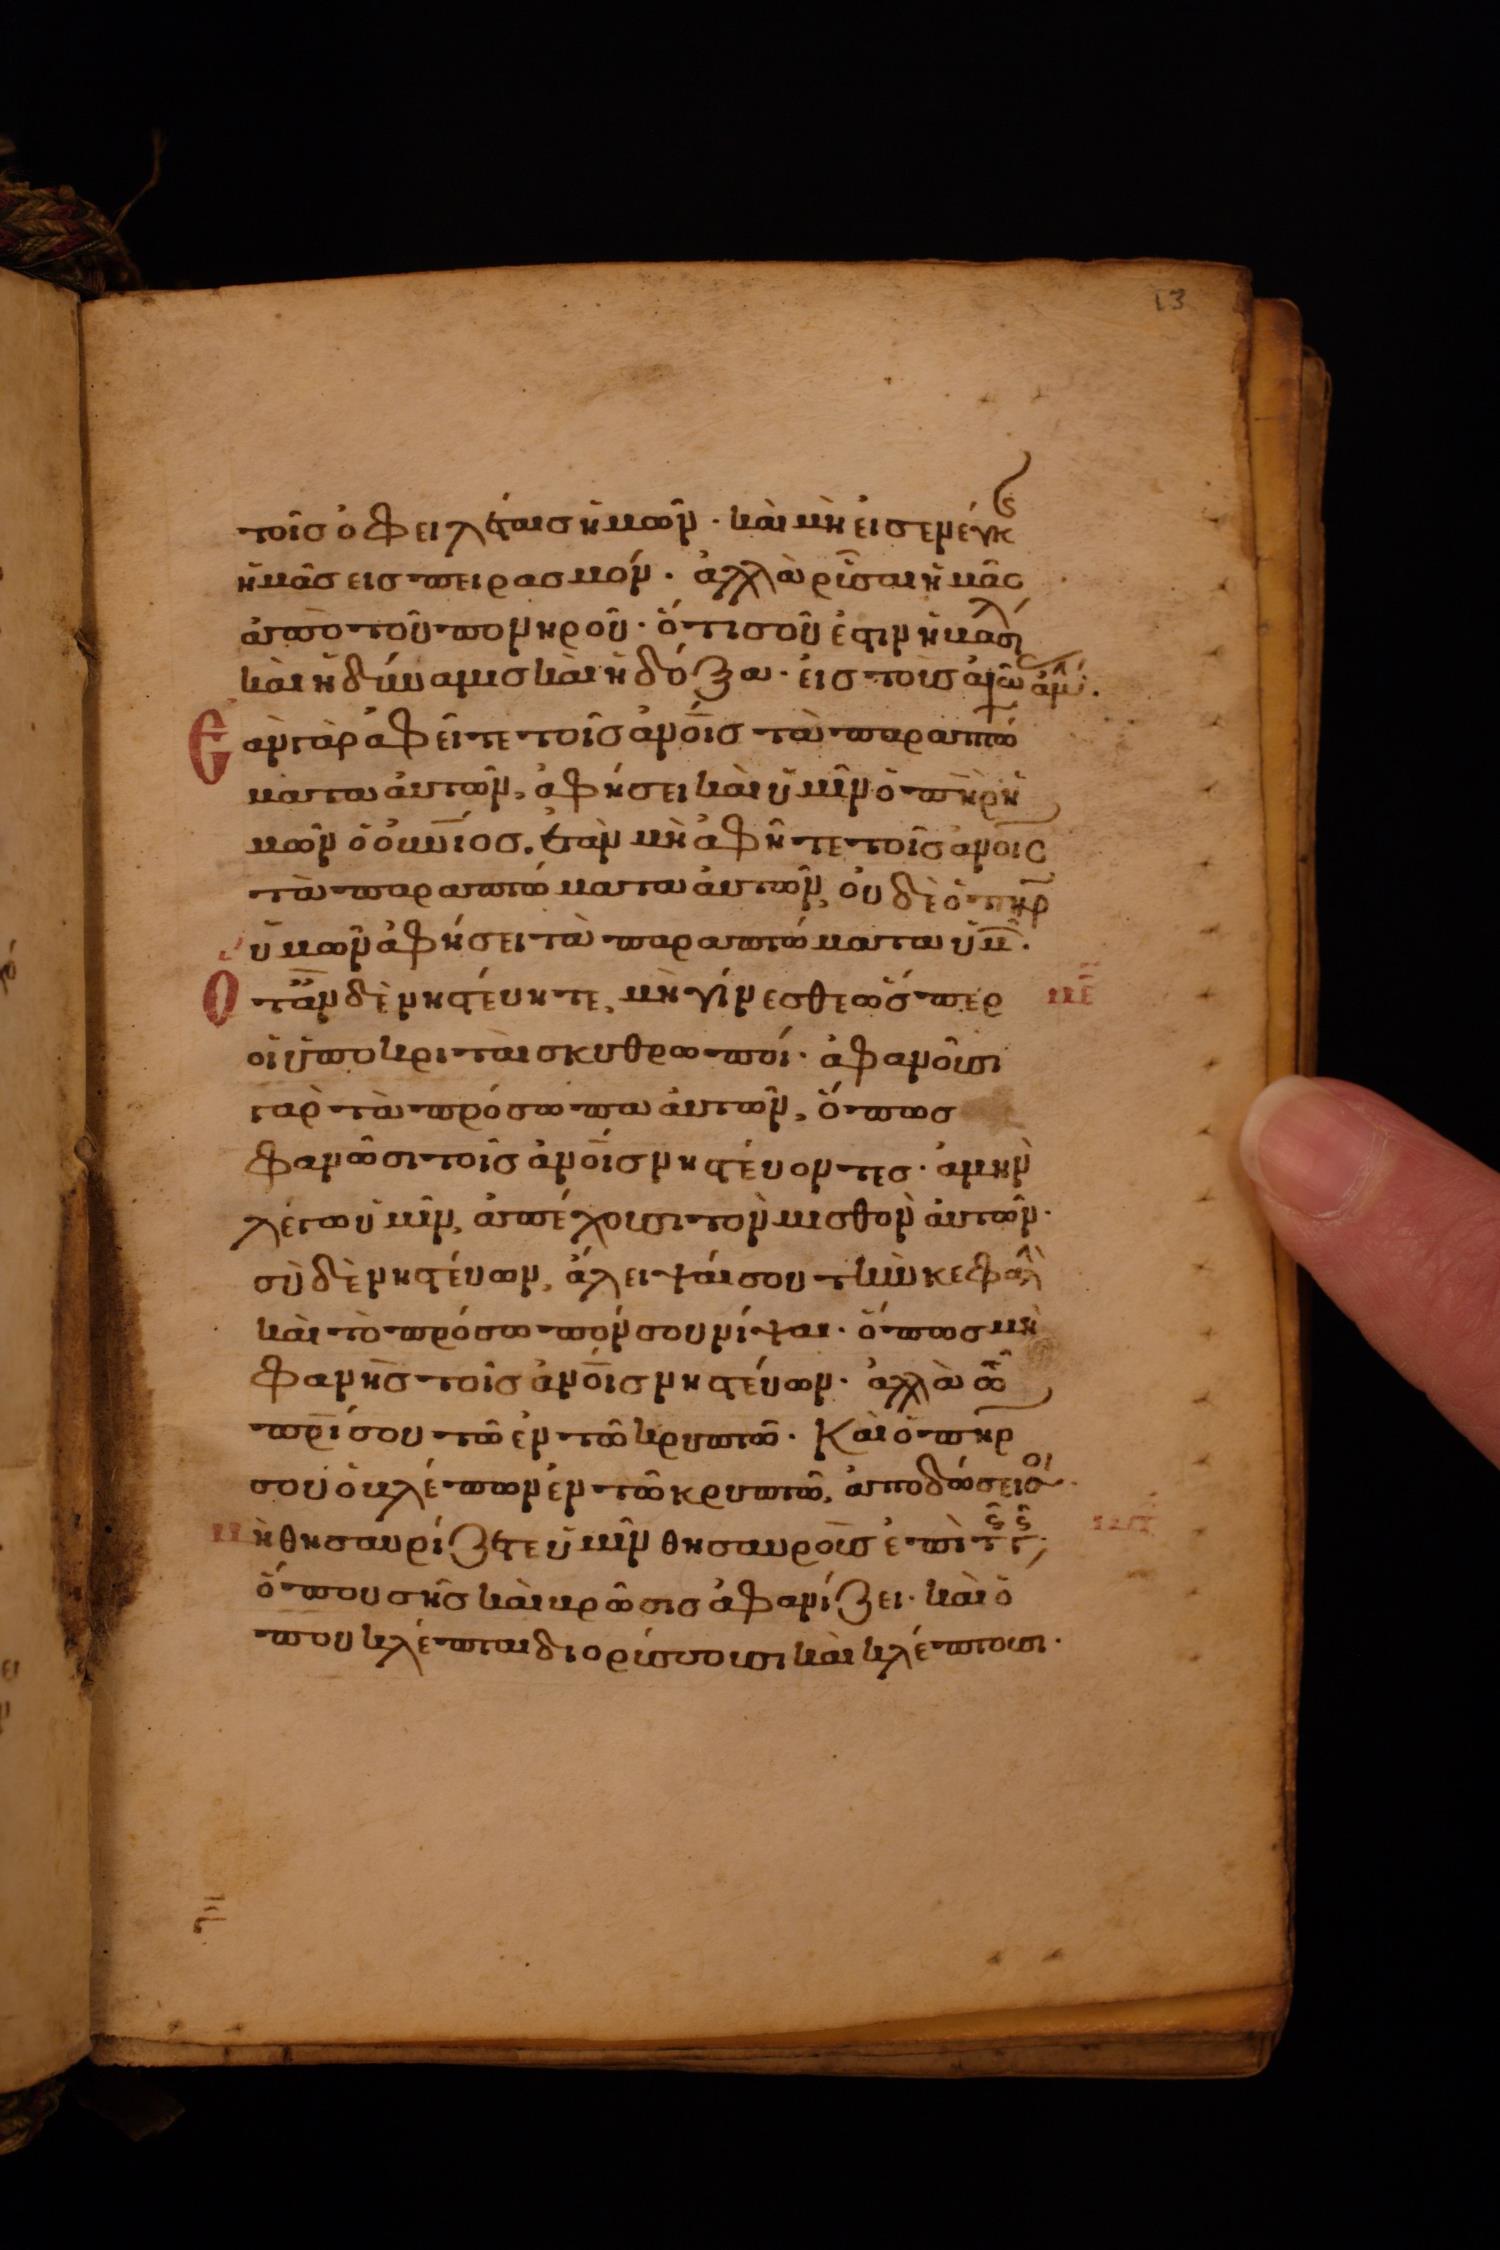 13
τοῖς ὀφειλέταις ἡμῶν · καὶ μὴ εἰσενέγκ
ἡμᾶς εις πειρασμόν · ἀλλὰ ρῦσαι ἡμᾶς
ἀπὸ τοῦ πονηροῦ · ὅτι σοῦ ἐστιν ἡ βασιλεί
καὶ ἡ δύναμις καὶ ἡ δόξα · εἰς τοὺς αἰῶ ἀμ.
Εὰν γὰρ ἀφεῖτε τοῖς ἀνοις τὰ παραπτώ
ματα ἀυτῶν, ἀφήσει καὶ ὑμῖν ὁ πηρ ἡ
μῶν ὁ οὐνιος. ἐὰν μὴ ἀφῆτε τοῖς ἀνοις
τὰ παραπτώματα ἀυτῶν, οὐδὲ ὁ πηρ
ὑμῶν ἀφήσει τὰ παραπτώματα ὑμ.
Οταν δὲ νηστέυητε, μὴ γίνεσθε ὥσπερ
οἱ ὑποκριταὶ σκυθρωποί · ἀφανοῦσι
γαρ τὰ πρόσωπα ἀυτῶν, ὅπως
φανῶσι τοῖς ἀνοις νηστέυοντες · ἀμὴν
λέγω ὑμῖν, ἀπέχουσι τὸν μισθὸν ἀυτῶν ·
σὺ δὲ νηστέυων, ἄλειψαί σου τὴν κεφαλὴ
καὶ τὸ πρόσωπόν σου νίψαι · ὅπως μὴ
φανῆς τοῖς ἀνοις νηστέυων · ἀλλὰ τῶ
πρι σου τῶ ἐν τῶ κρυπτῶ · Καὶ ὁ πηρ
σου ὁ βλέπων ἐν τῶ κρυπτῶ, ἀποδώσει σοι ·
Μὴ θησαυρίζετε ὑμῖν θησαυροὺς ἐπὶ τῆς γῆς,
ὅπου σὴς καὶ βρῶσις ἀφανίζει · καὶ ὅ
που κλέπται διορύσσουσι καὶ κλέπτουσι ·